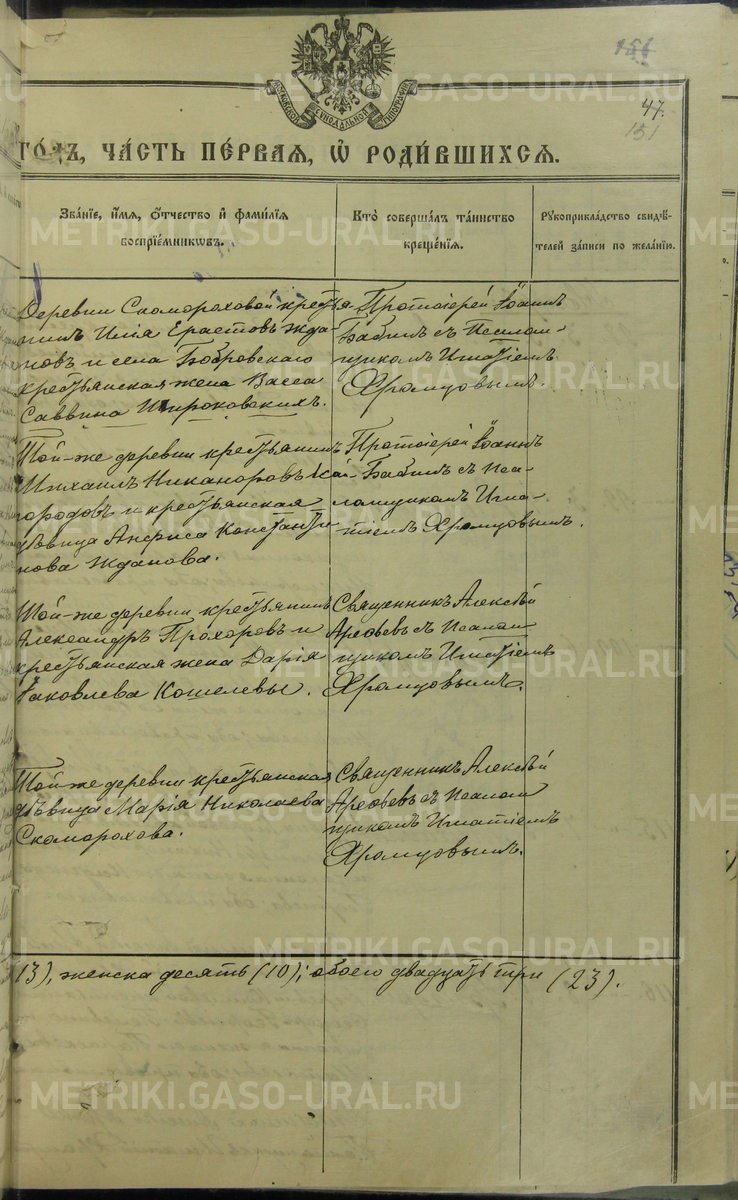 МОСКОВСКОЙ СУНОДАЛЬНОЙ ТИПОГРАФІИ
156
47.
151
го́дъ, ча́сть пе́рвая, ѡ҆ роди́вшихся.
Зва́нїе, и҆́мя, ѻ҆́тчество и҆ фами́лїя
воспрїе́мникѡвъ.
Кто̀ соверша́лъ та́инство
креще́нїя.
Рукоприкла́дство свидѣ́-
телей за́писи по жела́нїю.
Деревни Скомороховой кресть-
янинъ Илія Ерастовъ Жда-
новъ и села Бобровскаго
крестьянская жена Васса
Саввина Широковскихъ.
Протоіерей Іоаннъ
Бабинъ съ Псалом-
щикомъ Игнатіемъ
Хромцовымъ.
Той-же деревни крестьянинъ
Михаилъ Никаноровъ Кай-
городовъ и крестьянская
дѣвица Анфиса Константи
нова Жданова.
Протоіерей Іоаннъ
Бабинъ съ Пса-
ломщикомъ Игна-
тіемъ Хромцовымъ.
Той-же деревни крестьянинъ
Александръ Прохоровъ и
крестьянская жена Дарія
Яковлева Кошелевы.
Священникъ Алексѣй
Арефьевъ съ Псалом
щикомъ Игнатіемъ
Хромцовымъ.
Той-же деревни крестьянская
дѣвица Марія Николаева
Скоморохова.
Священникъ Алексѣй
Арефьевъ съ Псалом
щикомъ Игнатіемъ
Хромцовымъ.
13), женска десять (10); обоего двадцать три (23).
METRIKI.GASO-URAL.RU